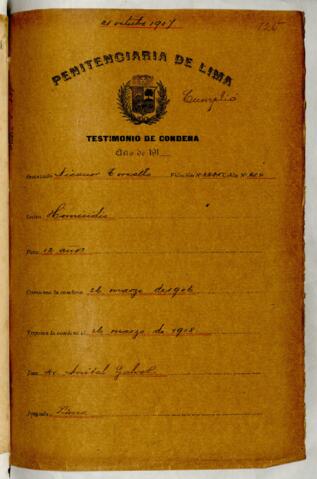 21 octubre 1907
125
PENITENCIARIA DE LIMA
Cumplió
TESTIMONIO DE CONDENA
Año de 191
Sentenciado Nicanor Filiación Nº Celda Nº
Delito Homicidio
Pena 12 años
Comienza la condena 26 marzo de 906
Termina la condena el 26 marzo de 1918
Juez Dr. Anibal
Juzgado Piura